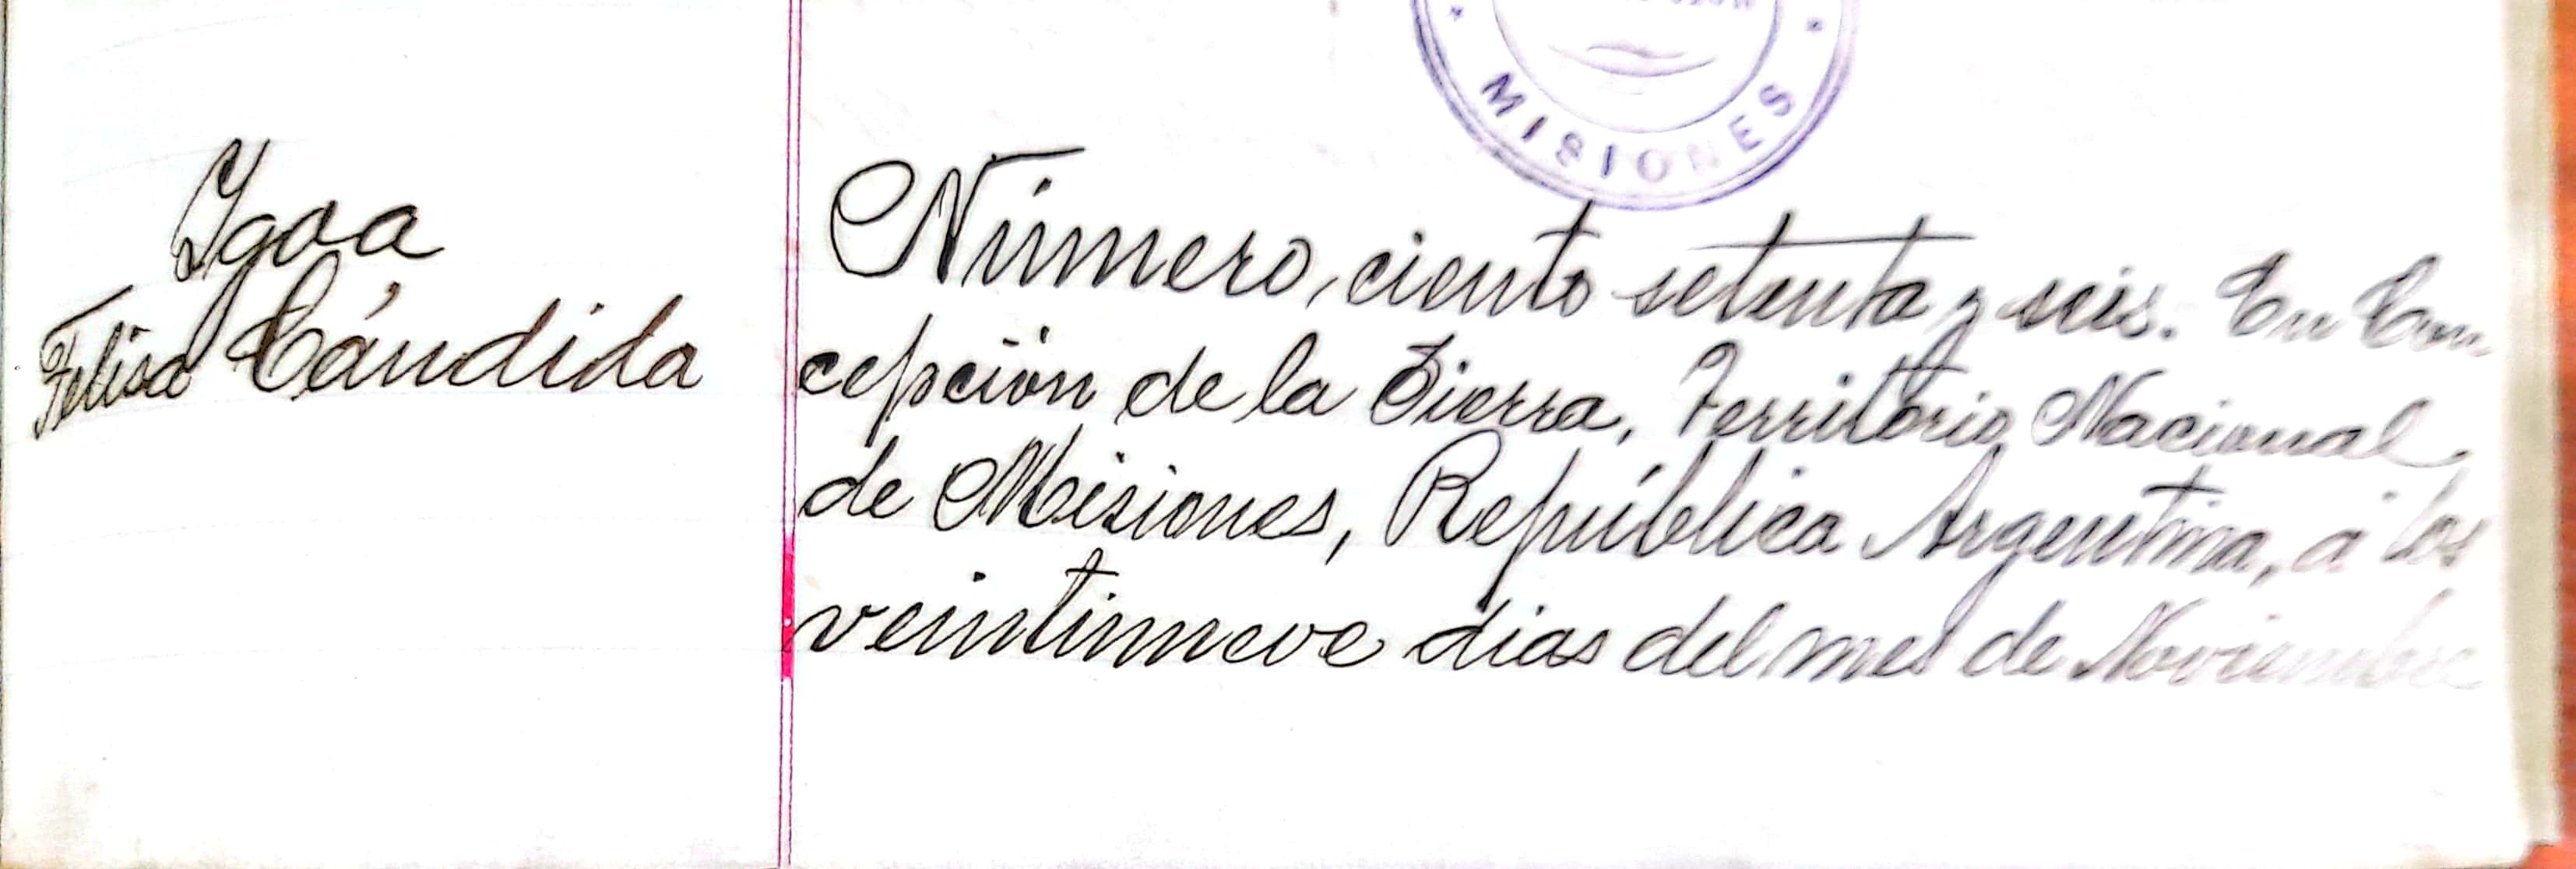 MISIONES
Ygoa
Felisa Cándida
Número, ciento setenta y seis. En Con
cepción de la Sierra, Territorio Nacional
de Misiones, República Argentina, á los
veintinueve dias del mes de Noviembre